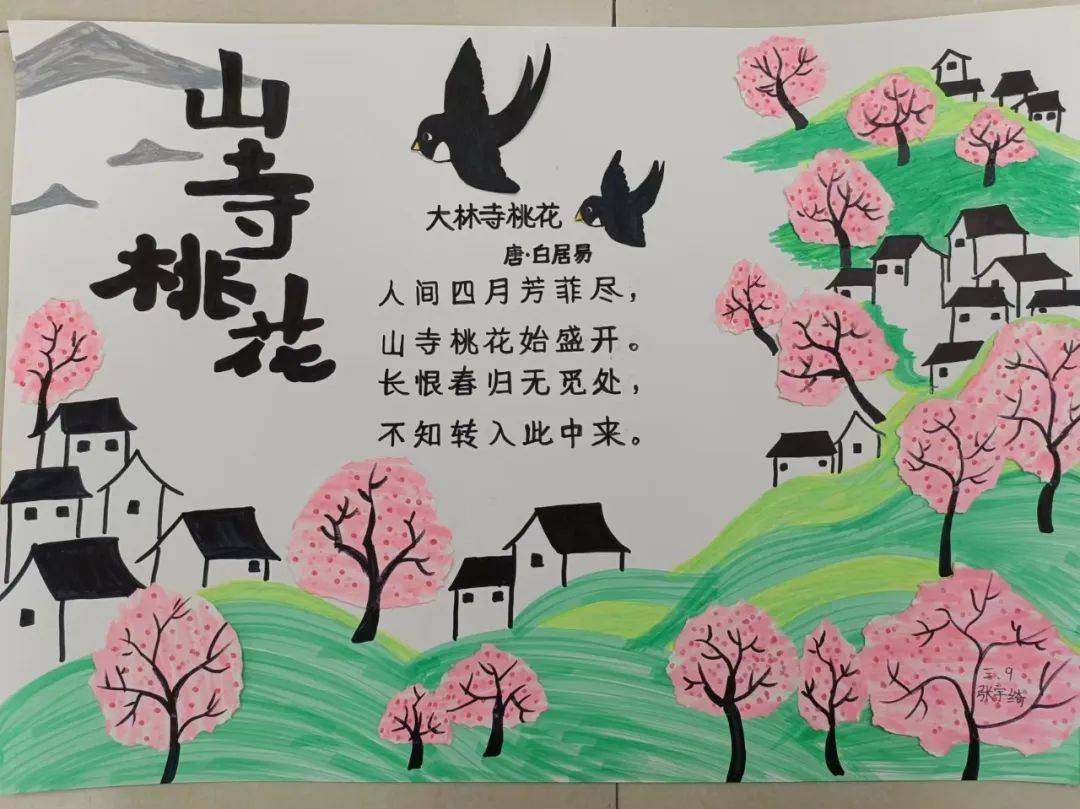 山寺桃花
大林寺桃花
唐·白居易
人间四月芳菲尽，
山寺桃花始盛开。
长恨春归无觅处，
不知转入此中来。
三.9
张宇绮